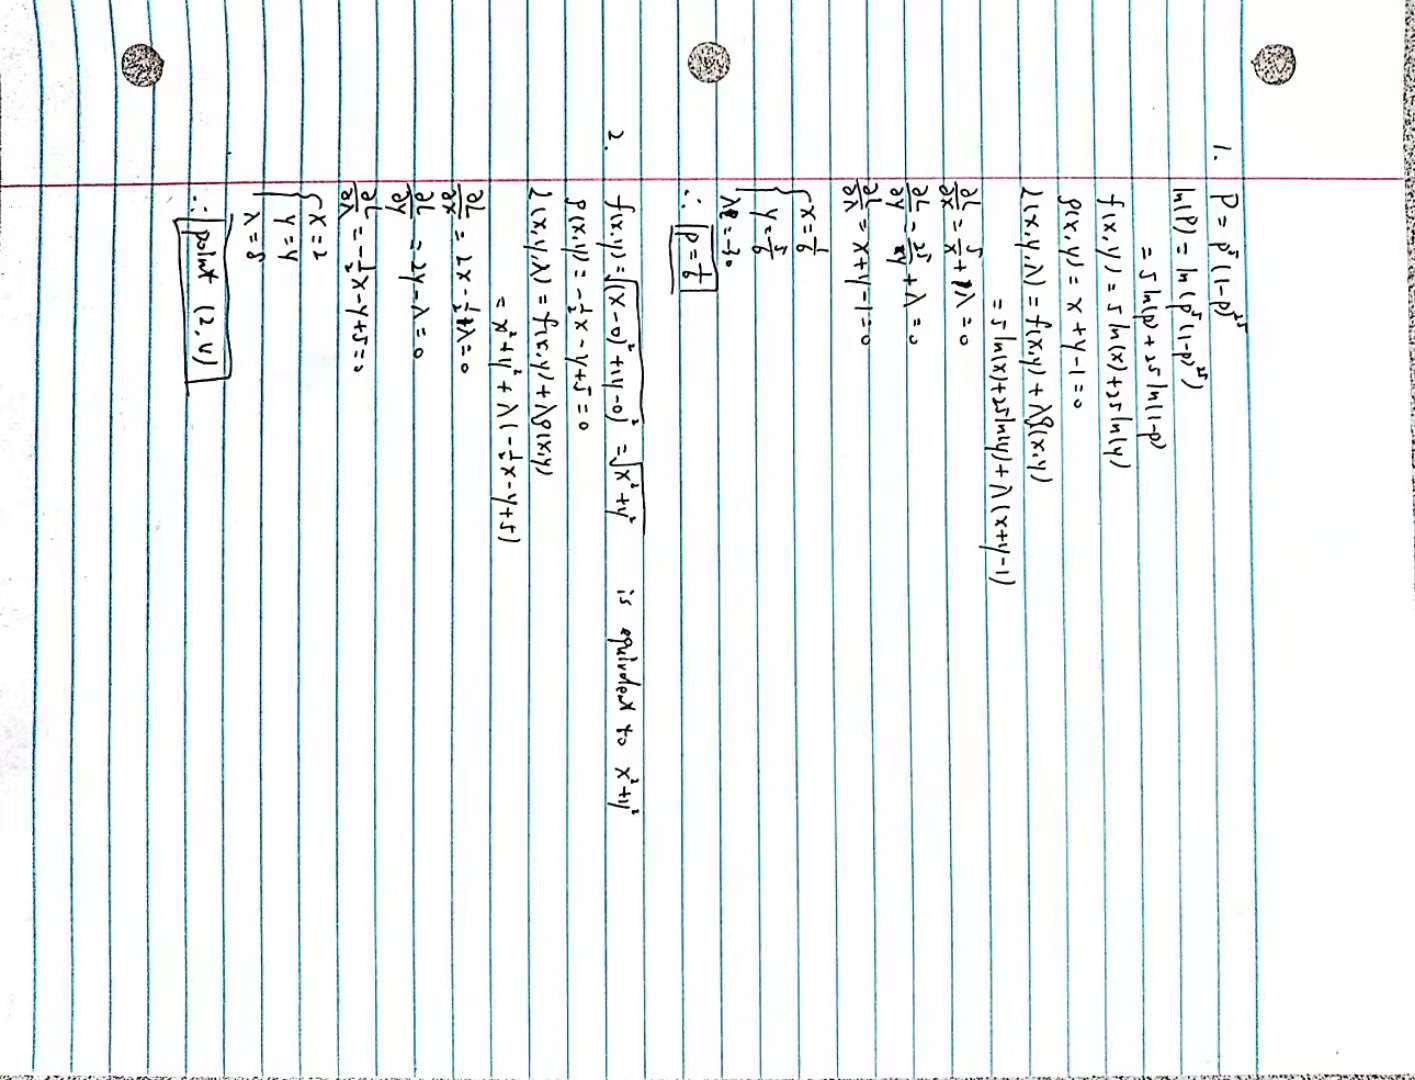 1. P = p⁵(1-p)²⁵
ln(P) = ln(p⁵(1-p)²⁵)
= 5 ln(p) + 25 ln(1-p)
f(x,y) = 5 ln(x) + 25 ln(y)
g(x,y) = x + y - 1 = 0
L(x,y,λ) = f(x,y) + λg(x,y)
= 5 ln(x) + 25 ln(y) + λ(x+y-1)
∂L/∂x = 5/x + λ = 0
∂L/∂y = 25/y + λ = 0
∂L/∂λ = x + y - 1 = 0
{ x = 1/6
y = 5/6
λ = -30
∴ p = 1/6
2. f(x,y) = √((x-0)² + (y-0)²) = √(x² + y²) is equivalent to x² + y²
g(x,y) = -1/2 x - y + 5 = 0
L(x,y,λ) = f(x,y) + λg(x,y)
= x² + y² + λ(-1/2 x - y + 5)
∂L/∂x = 2x - 1/2 λ = 0
∂L/∂y = 2y - λ = 0
∂L/∂λ = -1/2 x - y + 5 = 0
{ x = 2
y = 4
λ = 8
∴ point (2,4)